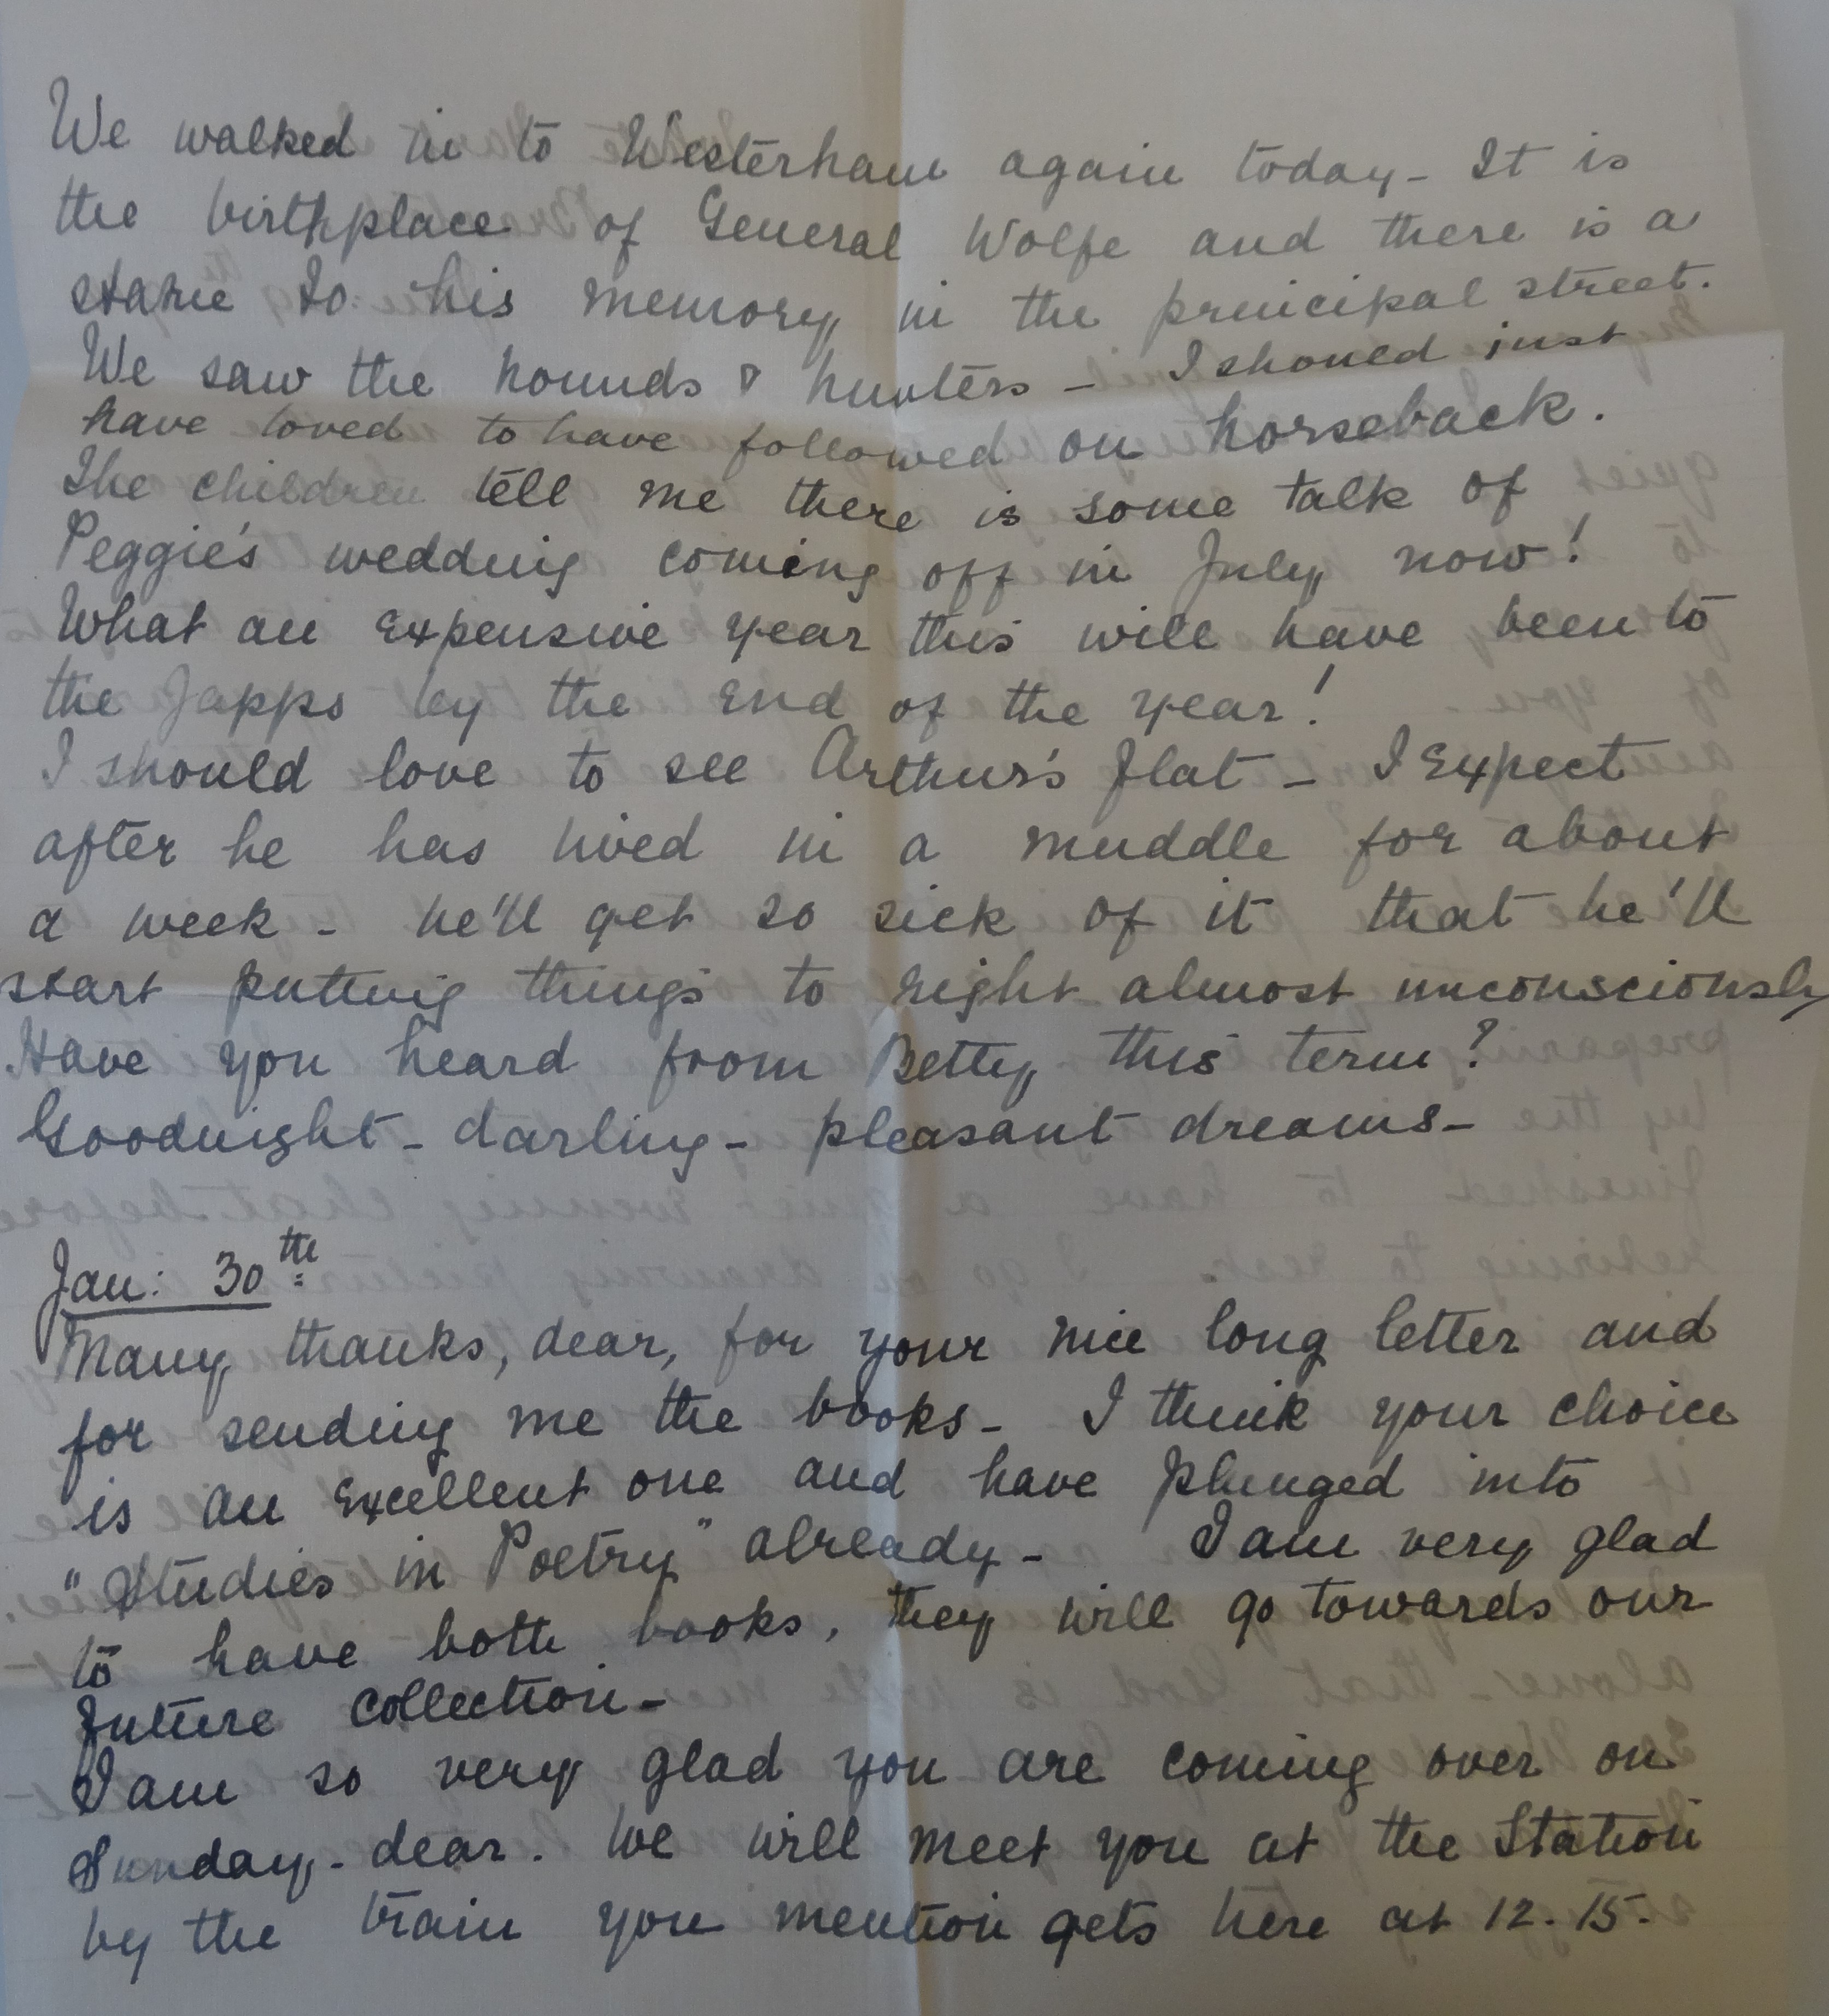 We walked in to Westerham again today - It is
the birthplace of General Wolfe and there is a
statue to his memory in the principal street.
We saw the hounds & hunters - I should just
have loved to have followed on horseback.
The children tell me there is some talk of
Peggie's wedding coming off in July now!
What an expensive year this will have been to
the Japps by the end of the year!
I should love to see Arthur's flat - I expect
after he has lived in a muddle for about
a week - he'll get so sick of it that he'll
start putting things to right almost unconsciously
Have you heard from Betty this term?
Goodnight - darling - pleasant dreams -
Jan: 30th
Many thanks, dear, for your nice long letter and
for sending me the books - I think your choice
is an excellent one and have plunged into
"Studies in Poetry" already - I am very glad
to have both books, they will go towards our
future collection -
I am so very glad you are coming over on
Sunday - dear. We will meet you at the Station
by the train you mention gets here at 12.15.